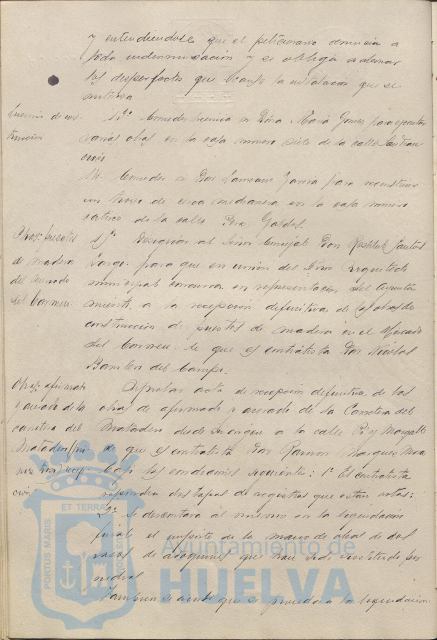 y entendiendose que el peticionario renuncia a
toda indemnización y se obliga a abonar
los desperfectos que cause la instalación que se
autoriza
Licencia de cons
trucción
13º Conceder licencia a Dña María Gomez para ejecutar
varias obras en la casa número siete de la calle
14 Conceder a Don García para reconstruir
un trozo de en la casa número
catorce de la calle Galdós.
Obras: puestos
de madera
del mercado
del Carmen.
15º Designar al Señor Concejal Don Santos
para que en unión del Señor Arquitecto
municipal concurra en representación del Ayunta
miento, a la recepción definitiva de las obras de
construcción de puestos de madera en el Mercado
del Carmen de que es contratista Don Nicolas
del Campo.
Obras: afirmado
y acerado de la
carretera del
Matadero
Aprobar acta de recepción definitiva de las
obras de afirmado y acerado de la Carretera del
Matadero desde a la calle Pi y Margall
de que es contratista Don Ramón Marquez
bajo las condiciones siguientes: 1ª El contratista
dos tapas de registros que están rotas:
2ª se descontará al mismo en la liquidación
final el importe de la mano de obra de dos
de adoquines que han sido
También se acordó que se proceda a la liquidación
PORTUS MARIS
ET TERRA
Ayuntamiento de
HUELVA